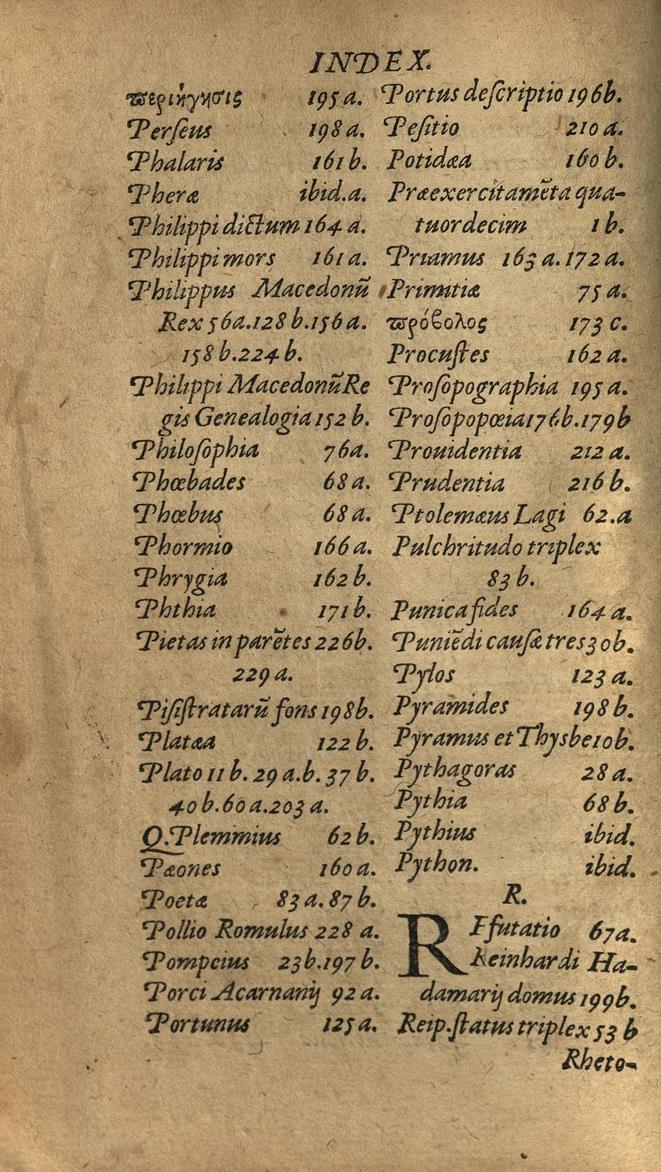 INDEX.
περιήγησις 195 a.
Perſeus 198 a.
Phalaris 161 b.
Pheræ ibid. a.
Philippi dictum 164 a.
Philippi mors 161 a.
Philippus Macedonũ
Rex 56 a. 128 b. 156 a.
158 b. 224 b.
Philippi Macedonũ Re
gis Genealogia 152 b.
Philoſophia 76 a.
Phœbades 68 a.
Phœbus 68 a.
Phormio 166 a.
Phrygia 162 b.
Phthia 171 b.
Pietas in parẽtes 226 b.
229 a.
Piſiſtratarũ fons 198 b.
Platæa 122 b.
Plato 11 b. 29 a. b. 37 b.
40 b. 60 a. 203 a.
Q. Plemmius 62 b.
Pæones 160 a.
Poetæ 83 a. 87 b.
Pollio Romulus 228 a.
Pompeius 23 b. 197 b.
Porci Acarnanij 92 a.
Portunus 125 a.
Portus deſcriptio 196 b.
Peſitio 210 a.
Potidæa 160 b.
Præexercitamẽta qua-
tuordecim 1 b.
Priamus 163 a. 172 a.
Primitiæ 75 a.
πρόβολος 173 c.
Procuſtes 162 a.
Proſopographia 195 a.
Proſopopœia 176 b. 179 b
Prouidentia 212 a.
Prudentia 216 b.
Ptolemæus Lagi 62. a
Pulchritudo triplex
83 b.
Punica fides 164 a.
Puniẽdi cauſæ tres 30 b.
Pylos 123 a.
Pyramides 198 b.
Pyramus et Thysbe 10 b.
Pythagoras 28 a.
Pythia 68 b.
Pythius ibid.
Python. ibid.
R.
REfutatio 67 a.
Reinhardi Ha-
damarij domus 199 b.
Reip. ſtatus triplex 53 b
Rheto-